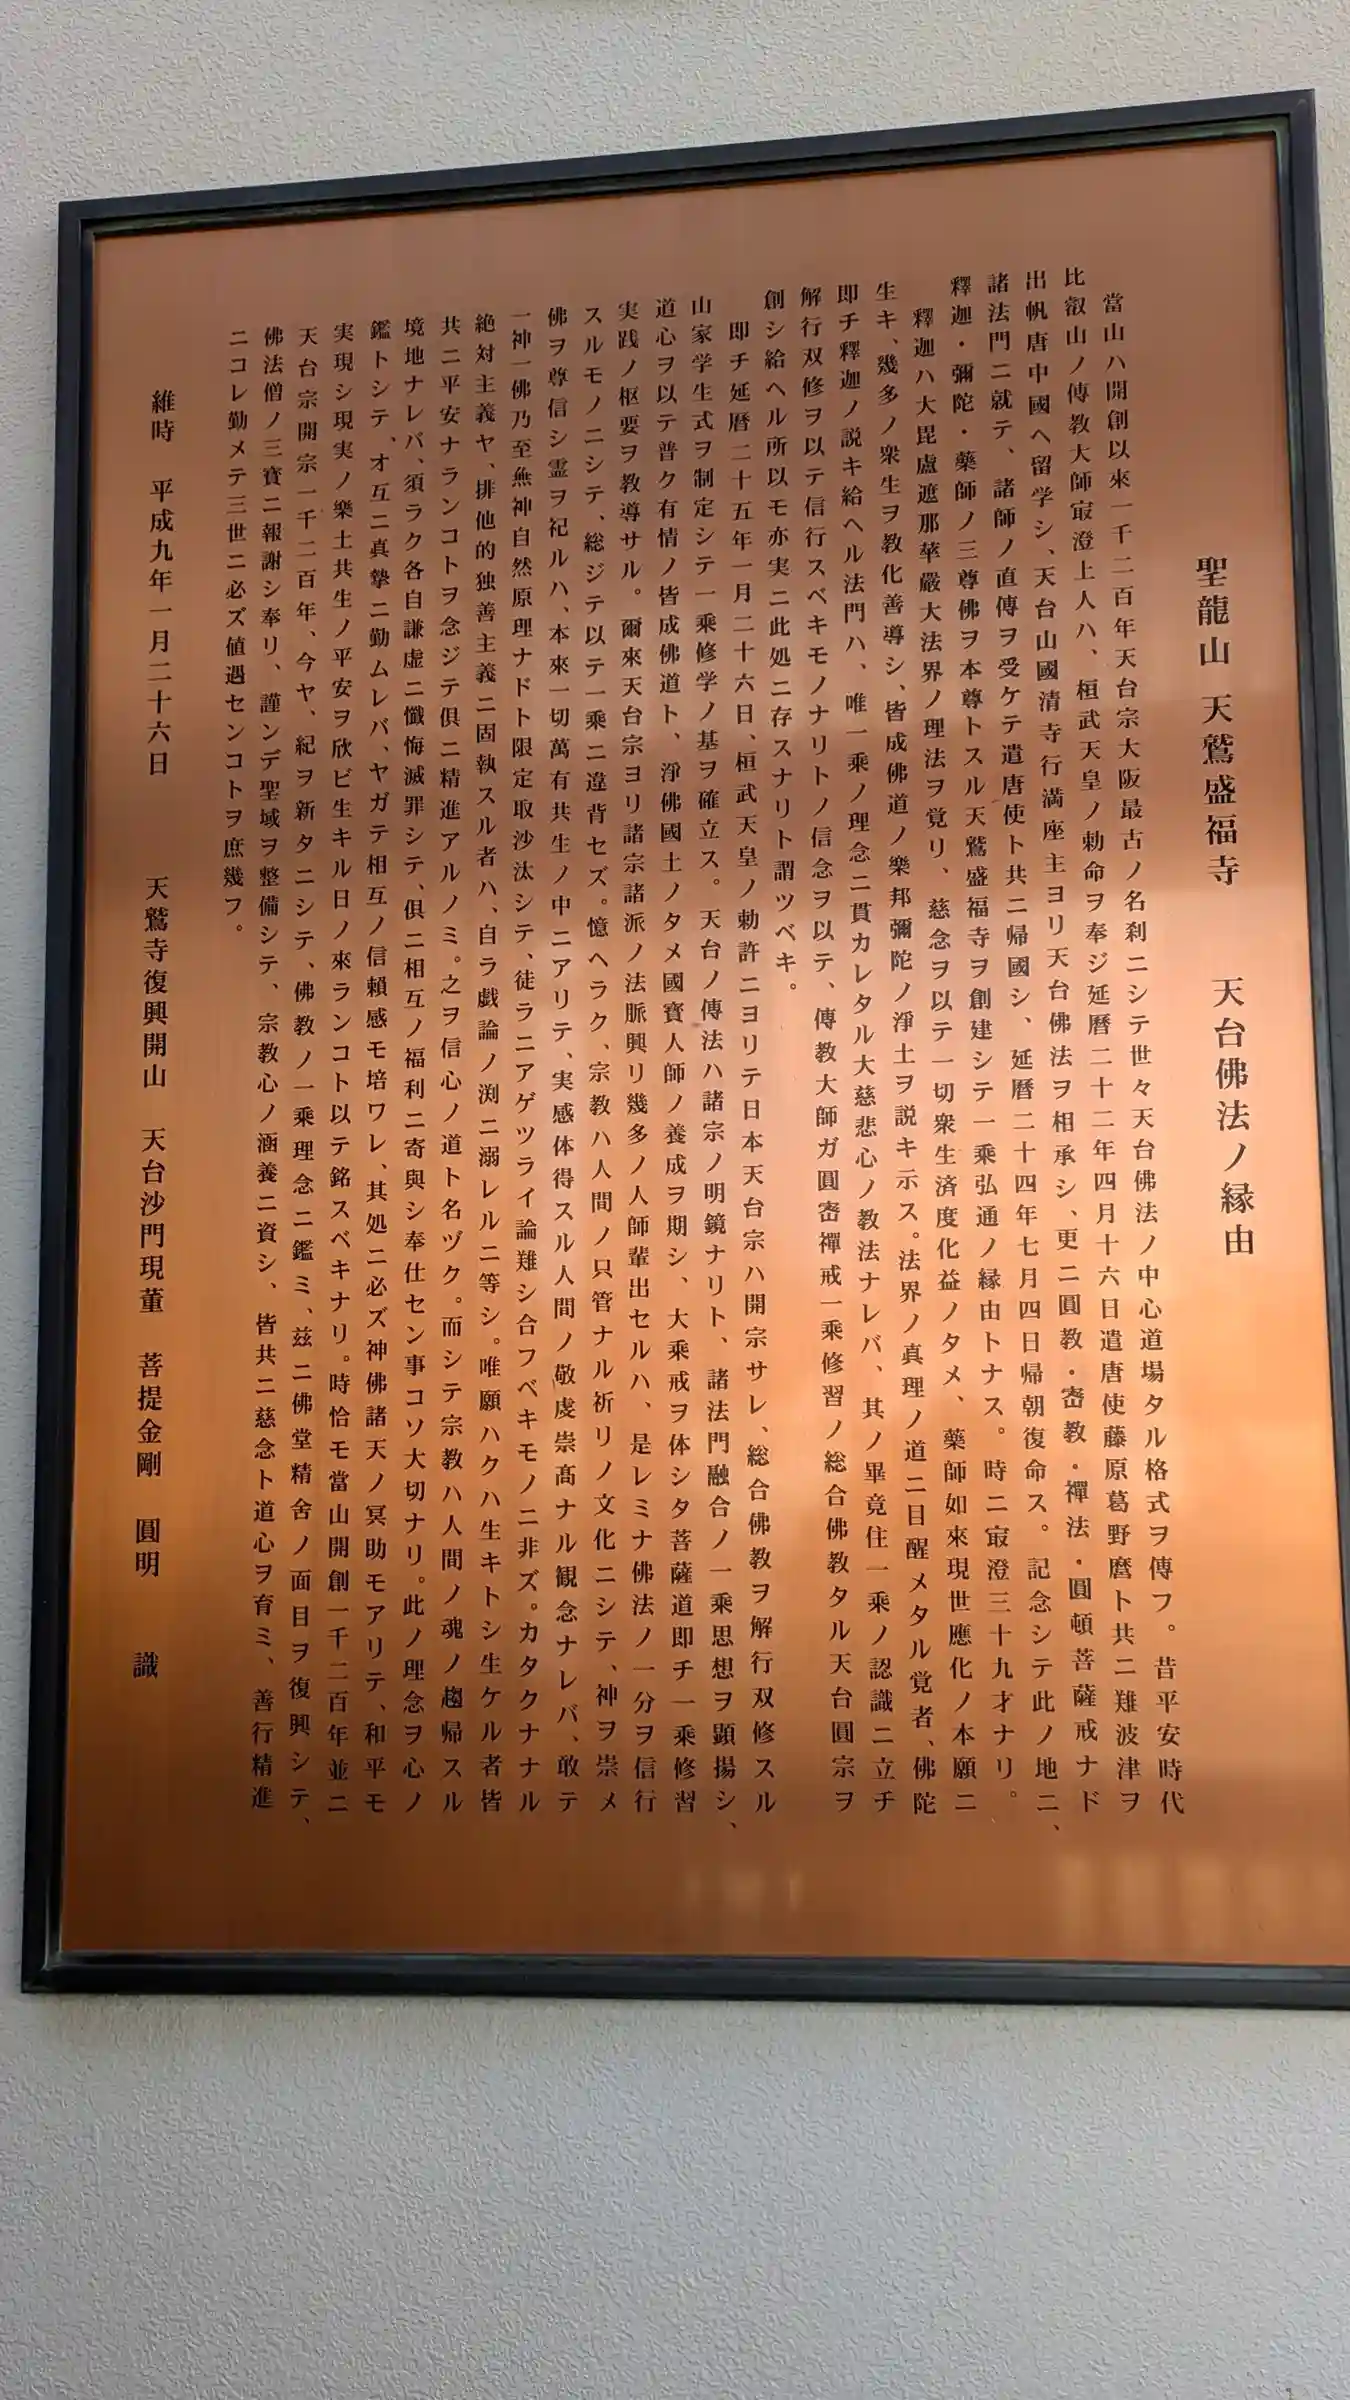 聖龍山 天鷲盛福寺 天台佛法ノ縁由
當山ハ開創以來一千二百年天台宗大阪最古ノ名刹ニシテ世々天台佛法ノ中心道場タル格式ヲ傳フ。昔平安時代
比叡山ノ傳教大師㝡澄上人ハ、桓武天皇ノ勅命ヲ奉ジ延暦二十二年四月十六日遣唐使藤原葛野麿ト共ニ難波津ヲ
出帆唐中國へ留学シ、天台山國清寺行満座主ヨリ天台佛法ヲ相承シ、更ニ圓教・密教・禪法・圓頓菩薩戒ナド
諸法門ニ就テ、諸師ノ直傳ヲ受ケテ遣唐使ト共ニ帰國シ、延暦二十四年七月四日帰朝復命ス。記念シテ此ノ地ニ、
釋迦・彌陀・藥師ノ三尊佛ヲ本尊トスル天鷲盛福寺ヲ創建シテ一乘弘通ノ縁由トナス。時ニ㝡澄三十九才ナリ。
釋迦ハ大毘盧遮那華嚴大法界ノ理法ヲ覚リ、慈念ヲ以テ一切衆生済度化益ノタメ、藥師如來現世應化ノ本願ニ
生キ、幾多ノ衆生ヲ教化善導シ、皆成佛道ノ樂邦彌陀ノ淨土ヲ説キ示ス。法界ノ真理ノ道ニ目醒メタル覚者、佛陀
即チ釋迦ノ説キ給ヘル法門ハ、唯一乘ノ理念ニ貫カレタル大慈悲心ノ教法ナレバ、其ノ畢竟住一乘ノ認識ニ立チ
解行双修ヲ以テ信行スベキモノナリトノ信念ヲ以テ、傳教大師ガ圓密禪戒一乘修習ノ総合佛教タル天台圓宗ヲ
創シ給ヘル所以モ亦実ニ此処ニ存スナリト謂ツベキ。
即チ延暦二十五年一月二十六日、桓武天皇ノ勅許ニヨリテ日本天台宗ハ開宗サレ、総合佛教ヲ解行双修スル
山家学生式ヲ制定シテ一乘修学ノ基ヲ確立ス。天台ノ傳法ハ諸宗ノ明鏡ナリト、諸法門融合ノ一乘思想ヲ顕揚シ、
道心ヲ以テ普ク有情ノ皆成佛道ト、淨佛國土ノタメ國寳人師ノ養成ヲ期シ、大乘戒ヲ体シタ菩薩道即チ一乘修習
実践ノ枢要ヲ教導サル。爾來天台宗ヨリ諸宗諸派ノ法脈興リ幾多ノ人師輩出セルハ、是レミナ佛法ノ一分ヲ信行
スルモノニシテ、総ジテ以テ一乘ニ違背セズ。憶ヘラク、宗教ハ人間ノ只管ナル祈リノ文化ニシテ、神ヲ崇メ
佛ヲ尊信シ霊ヲ祀ルハ、本來一切萬有共生ノ中ニアリテ、実感体得スル人間ノ敬虔崇髙ナル観念ナレバ、敢テ
一神一佛乃至無神自然原理ナドト限定取沙汰シテ、徒ラニアゲツライ論難シ合フベキモノニ非ズ。カタクナナル
絶対主義ヤ、排他的独善主義ニ固執スル者ハ、自ラ戯論ノ渕ニ溺レルニ等シ。唯願ハクハ生キトシ生ケル者皆
共ニ平安ナランコトヲ念ジテ俱ニ精進アルノミ。之ヲ信心ノ道ト名ヅク。而シテ宗教ハ人間ノ魂ノ趨帰スル
境地ナレバ、須ラク各自謙虚ニ懺悔滅罪シテ、俱ニ相互ノ福利ニ寄與シ奉仕セン事コソ大切ナリ。此ノ理念ヲ心ノ
鑑トシテ、オ互ニ真摯ニ勤ムレバ、ヤガテ相互ノ信頼感モ培ワレ、其処ニ必ズ神佛諸天ノ冥助モアリテ、和平モ
実現シ現実ノ樂土共生ノ平安ヲ欣ビ生キル日ノ來ランコト以テ銘スベキナリ。時恰モ當山開創一千二百年並ニ
天台宗開宗一千二百年、今ヤ、紀ヲ新タニシテ、佛教ノ一乘理念ニ鑑ミ、茲ニ佛堂精舎ノ面目ヲ復興シテ、
佛法僧ノ三寳ニ報謝シ奉リ、謹ンデ聖域ヲ整備シテ、宗教心ノ涵養ニ資シ、皆共ニ慈念ト道心ヲ育ミ、善行精進
ニコレ勤メテ三世ニ必ズ値遇センコトヲ庶幾フ。
維時 平成九年一月二十六日 天鷲寺復興開山 天台沙門現董 菩提金剛 圓明 識